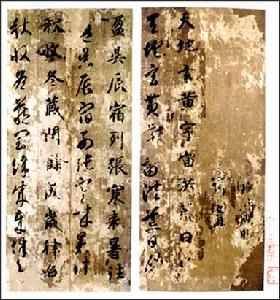 天地玄黃宇宙洪荒日
天地玄黃宇宙洪荒日
盈昃辰宿列張寒來暑往
盈昃辰宿列張寒來暑往
秋收冬藏閏餘成歲律呂
秋收冬藏閏餘成歲律呂